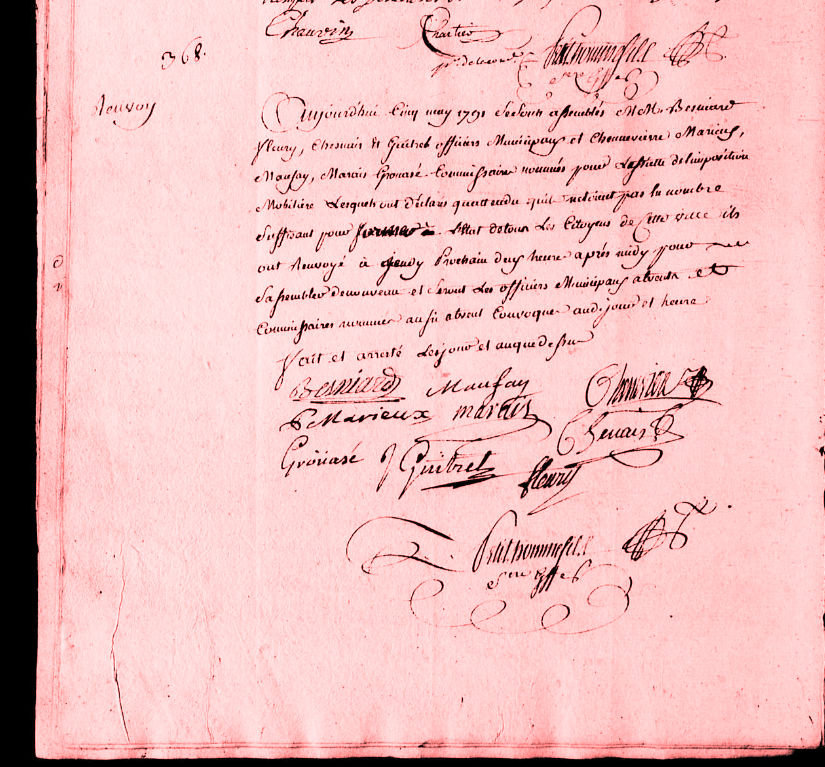 Chauvin Chartier
Prudhommefils
368.
Renvoy
Aujourd'hui Cinq may 1791 se sont assemblés M.M. Besniard
fleury, Chesnais et Guitrel officiers Municipaux et Chennevierre Marieux,
Maufay, Marais Groüasé Commissaire nommés pour Lassiette de limposition
Mobilière Lesquels ont déclarés quattendu quil netoient pas en nombre
Suffisant pour former Létat de tous Les Citoyens de Cette ville ils
ont Renvoyé à jeudy Prochain deux heure après midy pour
Sassembler denouveau et Seront Les officiers Municipaux absents et
Commissaires nommés aussi absent Convoqués aud. jour et heure
fait et arresté Lesjour et anque dessus
Besniard Maufay
P Marieux marais Chenais
Groüasé J Guitrel fleury
Prudhommefils